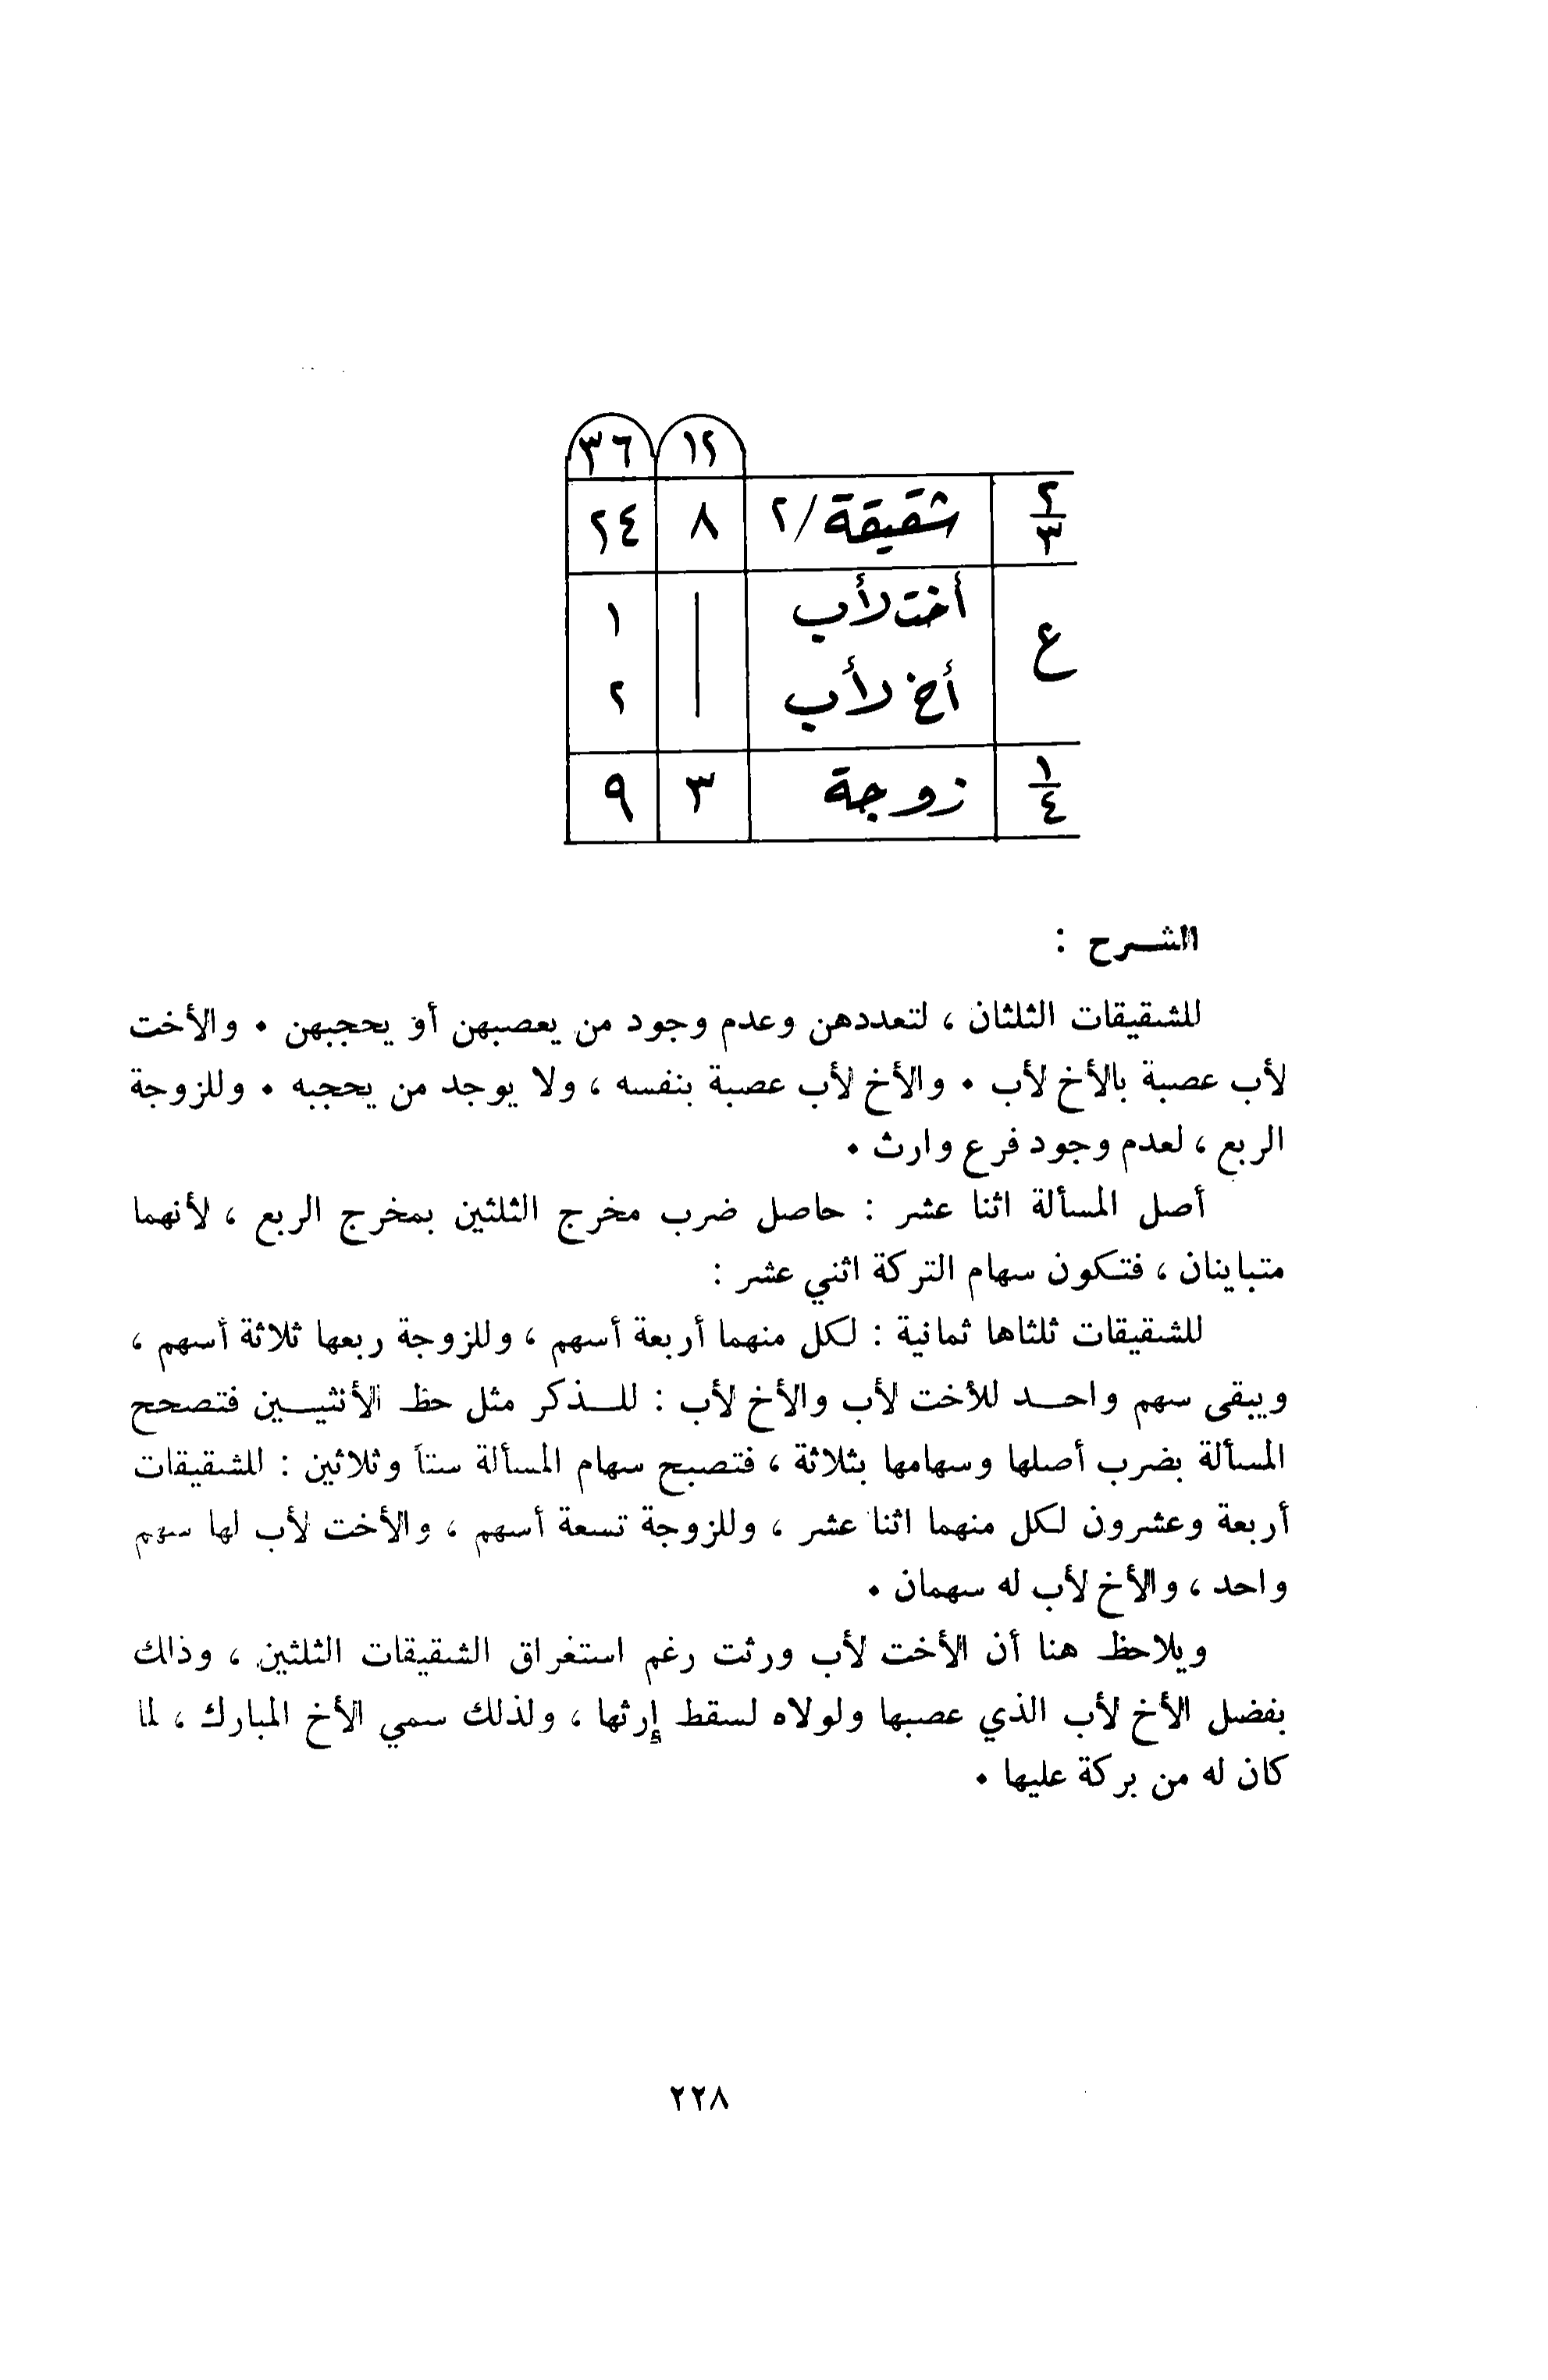 ١٢ ٣٦
٢/٣ شقيقة/٢ ٨ ٢٤
ع أخت لأب | ١
أخ لأب ٢
١/٤ زوجة ٣ ٩
الشرح :
للشقيقات الثلثان ، لتعددهن وعدم وجود من يعصبهن أو يحجبهن . والأخت
لأب عصبة بالأخ لأب . والأخ لأب عصبة بنفسه ، ولا يوجد من يحجبه . وللزوجة
الربع ، لعدم وجود فرع وارث .
أصل المسألة اثنا عشر : حاصل ضرب مخرج الثلثين بمخرج الربع ، لأنهما
متباينان ، فتكون سهام التركة اثني عشر :
للشقيقات ثلثاها ثمانية : لكل منهما أربعة أسهم ، وللزوجة ربعها ثلاثة أسهم ،
ويبقى سهم واحد للأخت لأب والأخ لأب : للذكر مثل حظ الأنثيين فتصحح
المسألة بضرب أصلها وسهامها بثلاثة ، فتصبح سهام المسألة ستاً وثلاثين : للشقيقات
أربعة وعشرون لكل منهما اثنا عشر ، وللزوجة تسعة أسهم ، والأخت لأب لها سهم
واحد ، والأخ لأب له سهمان .
ويلاحظ هنا أن الأخت لأب ورثت رغم استغراق الشقيقات الثلثين ، وذلك
بفضل الأخ لأب الذي عصبها ولولاه لسقط إرثها ، ولذلك سمي الأخ المبارك ، لما
كان له من بركة عليها .
٢٢٨